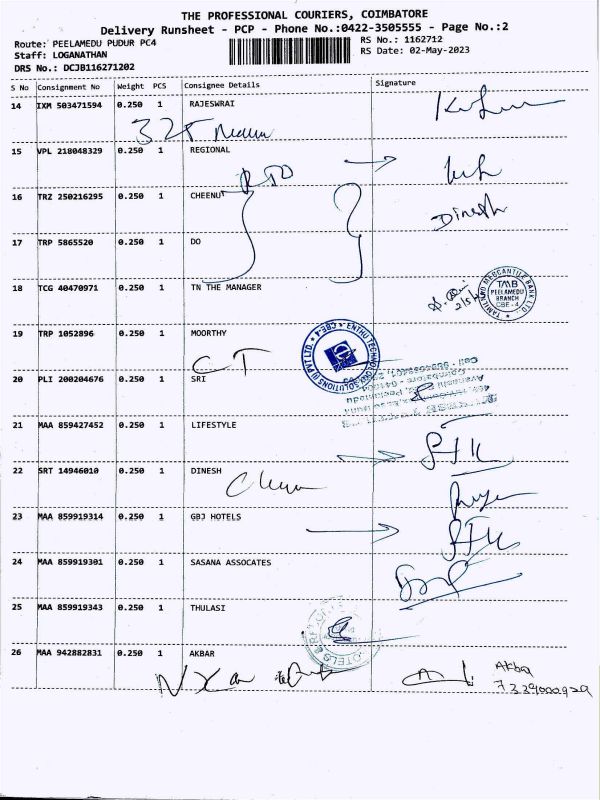 THE PROFESSIONAL COURIERS, COIMBATORE
Delivery Runsheet - PCP - Phone No.:0422-3505555 - Page No.:2
Route: PEELAMEDU PUDUR PC4
RS No.: 1162712
Staff: LOGANATHAN
RS Date: 02-May-2023
DRS No.: DCJB116271202
S No Consignment No Weight PCS Consignee Details Signature
14 IXM 503471594 0.250 1 RAJESWRAI
325
15 VPL 218048329 0.250 1 REGIONAL
16 TRZ 250216295 0.250 1 CHEENU
Dinesh
17 TRP 5865520 0.250 1 DO
18 TCG 40470971 0.250 1 TN THE MANAGER
TAMILNAD MERCANTILE BANK LTD.
TMB
PEELAMEDU
BRANCH
CBE - 4
19 TRP 1052896 0.250 1 MOORTHY
ENTHU TECHNOLOGY SOLUTIONS (I) PVT LTD. CBE-4
CT
20 PLI 200204676 0.250 1 SRI
21 MAA 859427452 0.250 1 LIFESTYLE
22 SRT 14946010 0.250 1 DINESH
23 MAA 859919314 0.250 1 GBJ HOTELS
24 MAA 859919301 0.250 1 SASANA ASSOCATES
25 MAA 859919343 0.250 1 THULASI
26 MAA 942882831 0.250 1 AKBAR
Akbar
7339000929